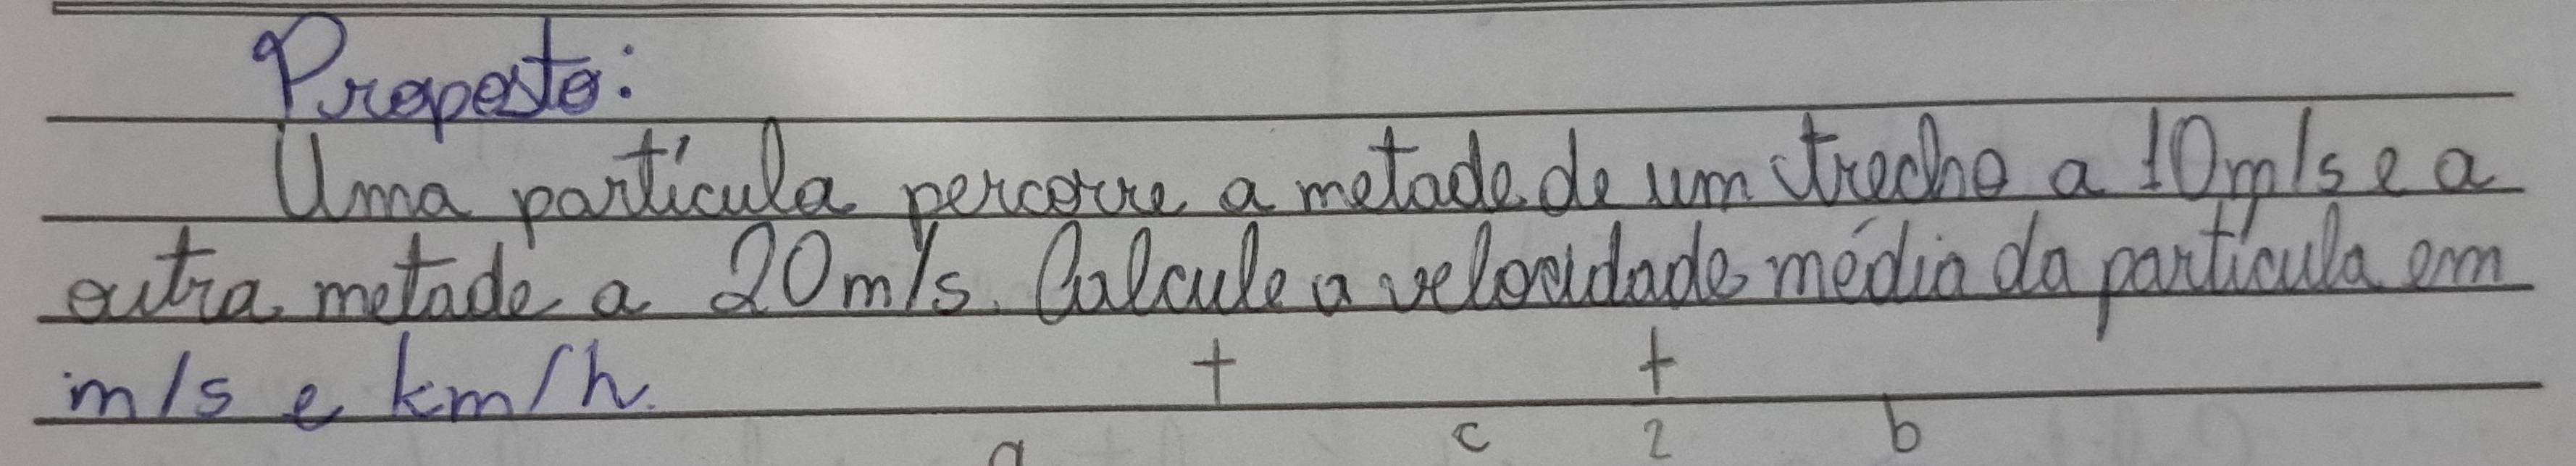 Proposto:
Uma partícula percorre a metade de um trecho a 10m/s e a
outra metade a 20m/s. Calcule a velocidade média da partícula em
m/s e km/h. t t
a c 2 b